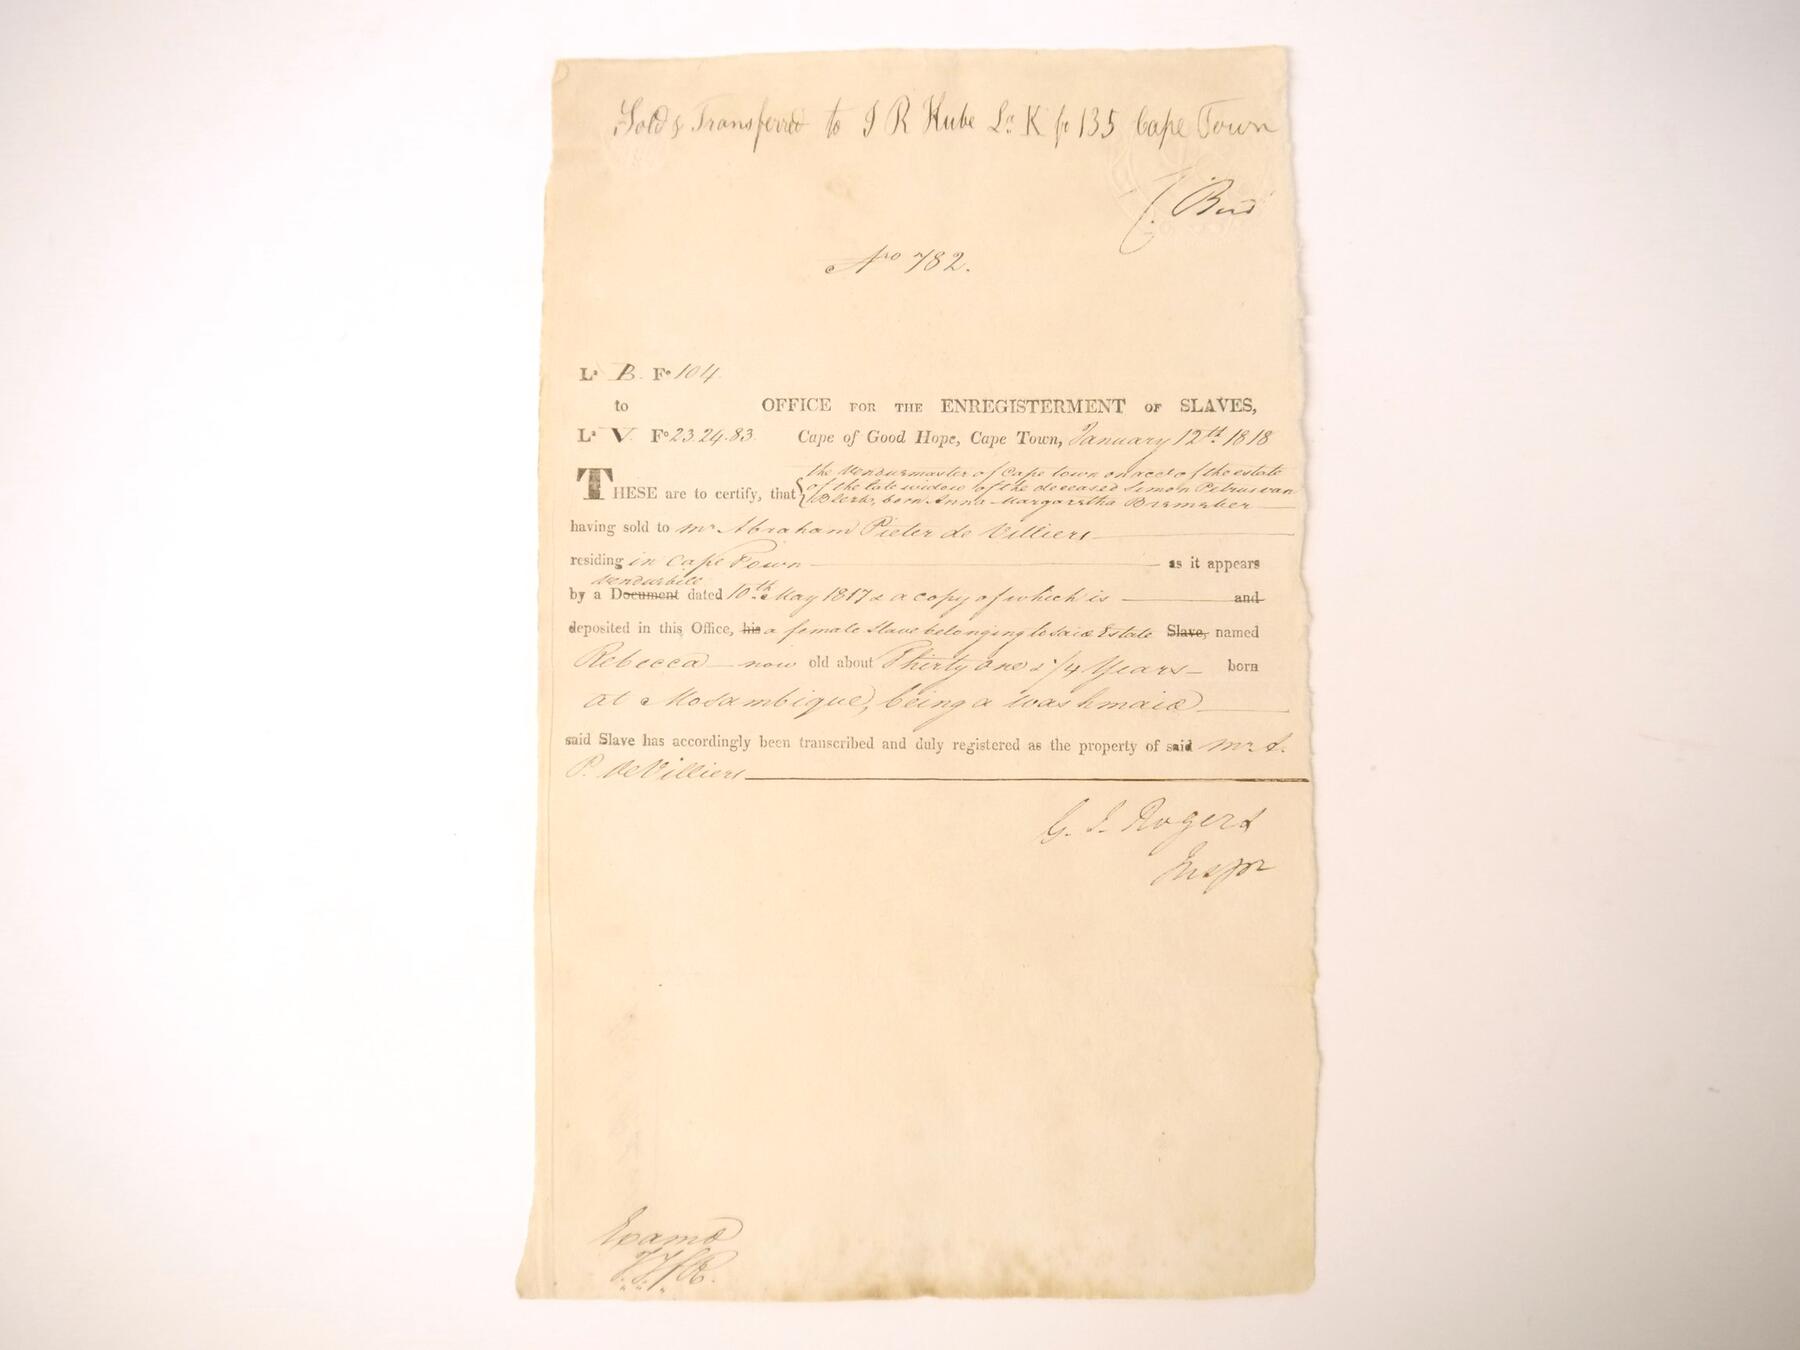 Sold & Transferred to J R Kube La K fo 135 Cape Town
C. Bird
No 782.
La B. Fo 104.
to OFFICE FOR THE ENREGISTERMENT OF SLAVES,
La V. Fo 23.24.83. Cape of Good Hope, Cape Town, January 12th 1818
THESE are to certify, that the Vendumaster of Cape town on acct of the estate
of the late widow of the deceased Simon Petrus van
Blerk, born Anna Margaretha
having sold to Mr Abraham Pieter de Villiers
residing in Cape Town as it appears
Vendubill
by a Document dated 10th May 1817 & a copy of which is and
deposited in this Office, his a female slave belonging to said Estate Slave, named
Rebecca now old about Thirty one & 1/4 Years born
at Mosambique, being a washmaid
said Slave has accordingly been transcribed and duly registered as the property of said Mr A.
P. de Villiers
G. J. Rogers
Inspr
Examd